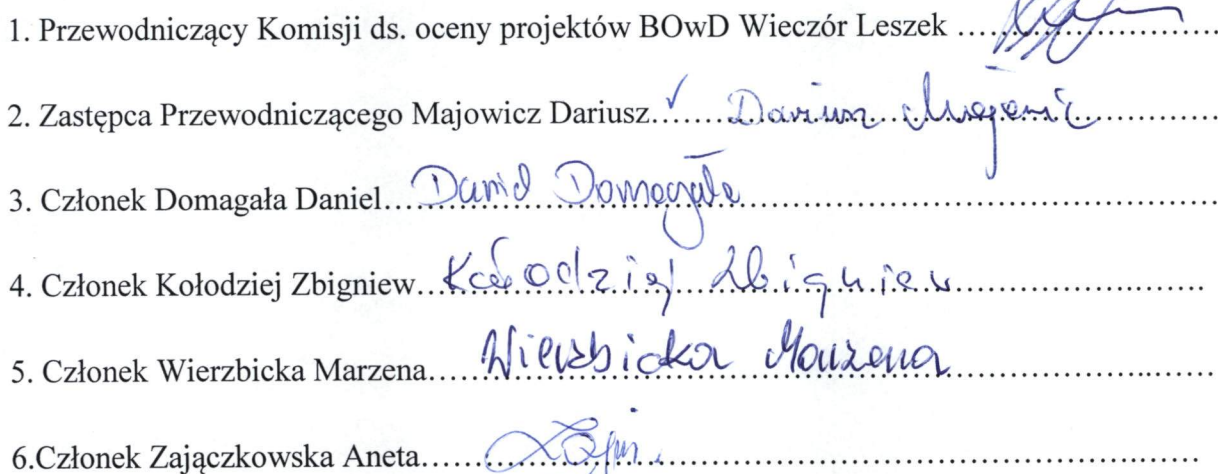 1. Przewodniczący Komisji ds. oceny projektów BOwD Wieczór Leszek ……………………..
2. Zastępca Przewodniczącego Majowicz Dariusz……Dariusz………………………
3. Członek Domagała Daniel…Daniel Domagała………………………………………
4. Członek Kołodziej Zbigniew…Kołodziej Zbigniew……………………
5. Członek Wierzbicka Marzena……Wierzbicka Marzena……………………
6.Członek Zajączkowska Aneta…………………………………………………